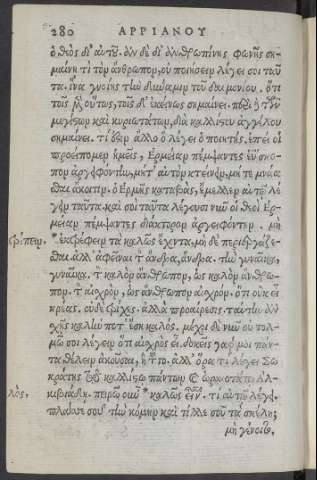 280 ΑΡΡΙΑΝΟΥ
ὁ θεὸς δι᾽ αὐτοῦ. ἂν δὲ δι᾽ ἀνθρωπίνης φωνῆς ση-
μαίνῃ τι τὸν ἄνθρωπον, οὐ ποιήσειν λέγει σοι ταῦ
τα. ἵνα γνοίης τὴν δύναμιν τοῦ δαιμονίου. ὅτι
τοῖς μὲν οὕτως, τοῖς δ᾽ ἐκείνως σημαίνει. περὶ δὲ τῶν
μεγίστων καὶ κυριωτάτων, διὰ καλλίστου ἀγγέλου
σημαίνει. τί ἐστιν ἄλλο ὃ λέγει ὁ ποιητὴς, ἐπεί οἱ
προείπομεν ἡμεῖς, Ἑρμείαν πέμψαντες ἐΰσκο-
πον ἀργεϊφόντην, μήτ᾽ αὐτὸν κτείνειν, μήτε μνάα
σθαι ἄκοιτιν. ὁ Ἑρμῆς καταβὰς, ἔμελλεν αὐτῷ λέ
γειν ταῦτα. καὶ σοὶ ταῦτα λέγουσι νῦν οἱ θεοὶ Ἑρ
μείαν πέμψαντες διάκτορον ἀργειφόντην. μὴ
ἐκστρέφειν τὰ καλῶς ἔχοντα, μὴ δὲ περιεργάζε-
σθαι. ἀλλ᾽ ἀφεῖναι τὸν ἄνδρα, ἄνδρα. τὴν γυναῖκα,
γυναῖκα. τὸν καλὸν ἄνθρωπον, ὡς καλὸν ἄνθρω
πον. τὸν αἰσχρὸν, ὡς ἄνθρωπον αἰσχρόν. ὅτι οὐκ εἶ
κρέας. οὐδὲ τρίχες. ἀλλὰ προαίρεσις. ταύτην ἂν
σχῇς καλὴν τότ᾽ ἔσῃ καλὸς. μέχρι δὲ νῦν οὐ τολ-
μῶ σοι λέγειν ὅτι αἰσχρὸς εἶ. δοκεῖς γάρ μοι πάν
τα θέλειν ἀκοῦσαι, ἢ τοῦτο. ἀλλ᾽ ὅρα τί λέγει Σω
κράτης τῷ καλλίστῳ πάντων καὶ ὡραιοτάτῳ Ἀλ-
λὸς.
κιβιάδῃ. πειρῶ οὖν καλῶς εἶναι. τί αὐτῷ λέγει.
πλάσσε σου τὴν κόμην καὶ τίλλε σοῦ τὰ σκέλη;
μὴ γένοιτο.